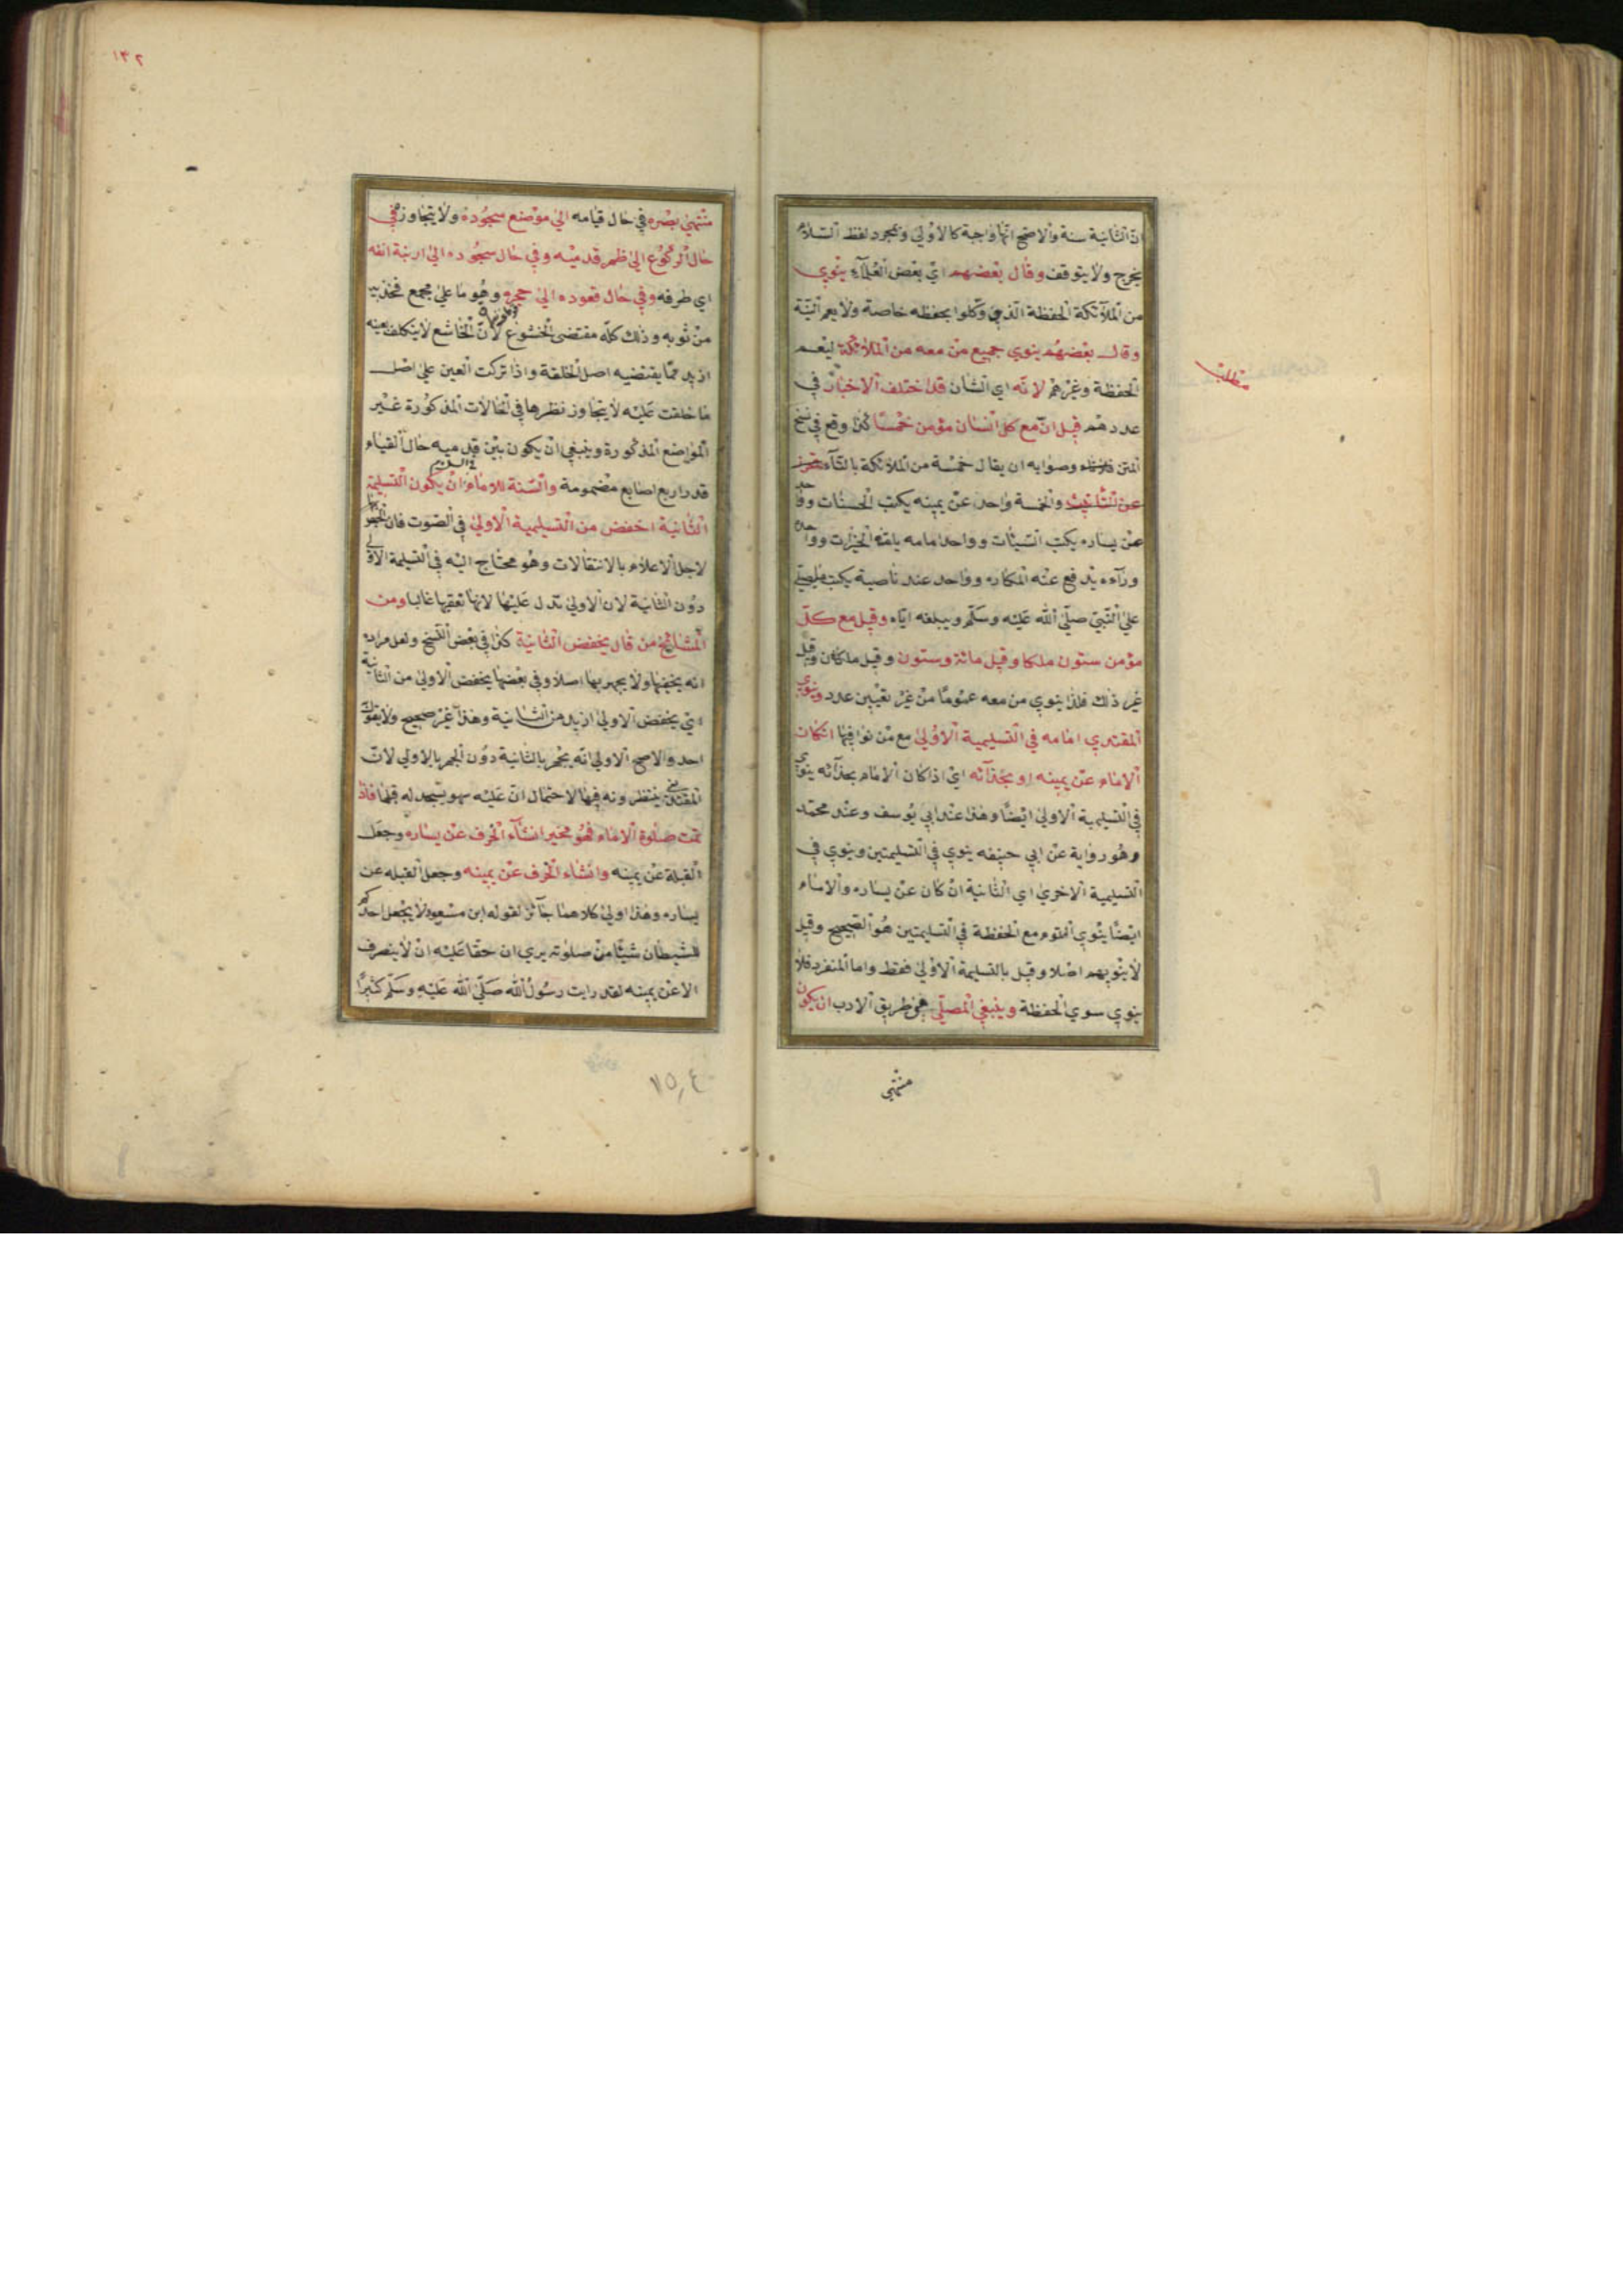 ان الثانية سنة والاصح انها واجبة كالاولى وبمجرد لفظ السلام
يخرج ولا يتوقف وقال بعضهم اي بعض العلماء ينوي
من الملائكة الحفظة الذين وكلوا بحفظه خاصة ولا يعم النية
وقال بعضهم ينوي جميع من معه من الملائكة ليعم
الحفظة وغيرهم لانه اي الشان قد اختلف الاخبار في
عددهم قيل ان مع كل انسان مؤمن خمسا كذا وقع في نسخ
المتن وصوابه ان يقال خمسة من الملائكة بالتاء
عن التانيث والخمسة واحد عن يمينه يكتب الحسنات وواحد
عن يساره يكتب السيئات وواحد امامه يلقنه الخيرات وواحد
وراءه يدفع عنه المكاره وواحد عند ناصية يكتب ما يصلي
على النبي صلى الله عليه وسلم ويبلغه اياه وقيل مع كل
مؤمن ستون ملكا وقيل مائة وستون وقيل ملكان وقيل
غير ذلك فلذا ينوي من معه عموما من غير تعيين عدد وينوي
المقتدي امامه في التسليمية الاولى مع من نوا فيها انكان
الامام عن يمينه او بحذائه اي اذا كان الامام بحذائه ينوي
في التسليمية الاولى ايضا وهذا عند ابي يوسف وعند محمد
وهو رواية عن ابي حنيفه ينوي في التسليمتين وينوي في
التسليمية الاخرى اي الثانية ان كان عن يساره والامام
ايضا ينوي القوم مع الحفظة في التسليمتين هو الصحيح وقيل
لا ينويهم اصلا وقيل بالتسليمة الاولى فقط واما المنفرد فلا
ينوي سوى الحفظة وينبغي المصلي طريق الادب ان يكون
منتهى
مطلب
١٣٢
منتهى بصره في حال قيامه الى موضع سجوده ولا يتجاوز وفي
حال الركوع الى ظهر قدميه وفي حال سجوده الى ارنبة انفه
اي طرفه وفي حال قعوده الى حجره وهو ما على مجمع فخذيه
من ثوبه وذلك كله مقتضى الخشوع لان الخاشع لا يتكلف بعينه
ازيد مما يقتضيه اصل الخلقة واذا تركت العين على اصل
ما خلقت عليه لا يتجاوز نظرها في الحالات المذكورة غير
المواضع المذكورة وينبغي ان يكون بين قدميه حال القيام
قدر اربع اصابع مضمومة والسنة للامام ان يكون التسليمة
الثانية اخفض من التسليمية الاولى في الصوت فان الجهر
لاجل الاعلام بالانتقالات وهو محتاج اليه في التسليمة الاولى
دون الثانية لان الاولى تدل عليها لانها تعقبها غالبا ومن
المشائخ من قال يخفض الثانية كذا في بعض النسخ ولعل مراده
انه يخفيها ولا يجهر بها اصلا وفي بعضها يخفض الاولى من الثانية
اي يخفض الاولى ازيد من الثانية وهذا غير صحيح ولا يقول
احد والاصح الاولى انه يجهر بالثانية دون الجهر بالاولى لان
المقتدين ينتظرونه فيها لاحتمال ان عليه سهو يسجد له قبلها فاذا
تمت صلوة الامام فهو مخير ان شاء انحرف عن يساره وجعل
القبلة عن يمينه وان شاء انحرف عن يمينه وجعل القبله عن
يساره وهذا اولى كلاهما جائز لقوله ابن مسعود لا يجعل احدكم
للشيطان شيئا من صلوته يرى ان حقا عليه ان لا ينصرف
الا عن يمينه لقد رايت رسول الله صلى الله عليه وسلم كثيرا